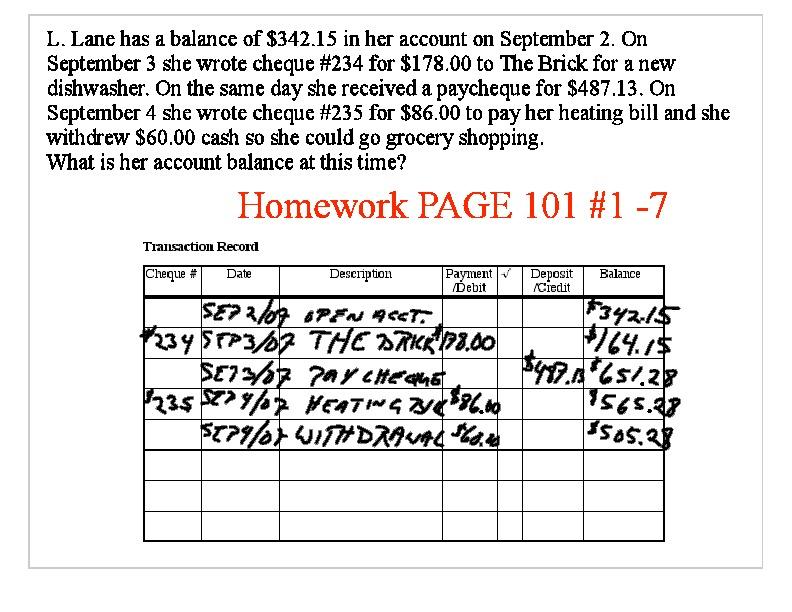 L. Lane has a balance of $342.15 in her account on September 2. On
September 3 she wrote cheque #234 for $178.00 to The Brick for a new
dishwasher. On the same day she received a paycheque for $487.13. On
September 4 she wrote cheque #235 for $86.00 to pay her heating bill and she
withdrew $60.00 cash so she could go grocery shopping.
What is her account balance at this time?
Homework PAGE 101 #1 -7
Transaction Record
Cheque # Date Description Payment /Debit √ Deposit /Credit Balance
SEP 2/07 OPEN ACCT. $342.15
#234 SEP 3/07 THE BRICK $178.00 $164.15
SEP 3/07 PAY CHEQUE $487.13 $651.28
#235 SEP 4/07 HEATING $86.00 $565.28
SEP 4/07 WITHDRAWAL $60.00 $505.28